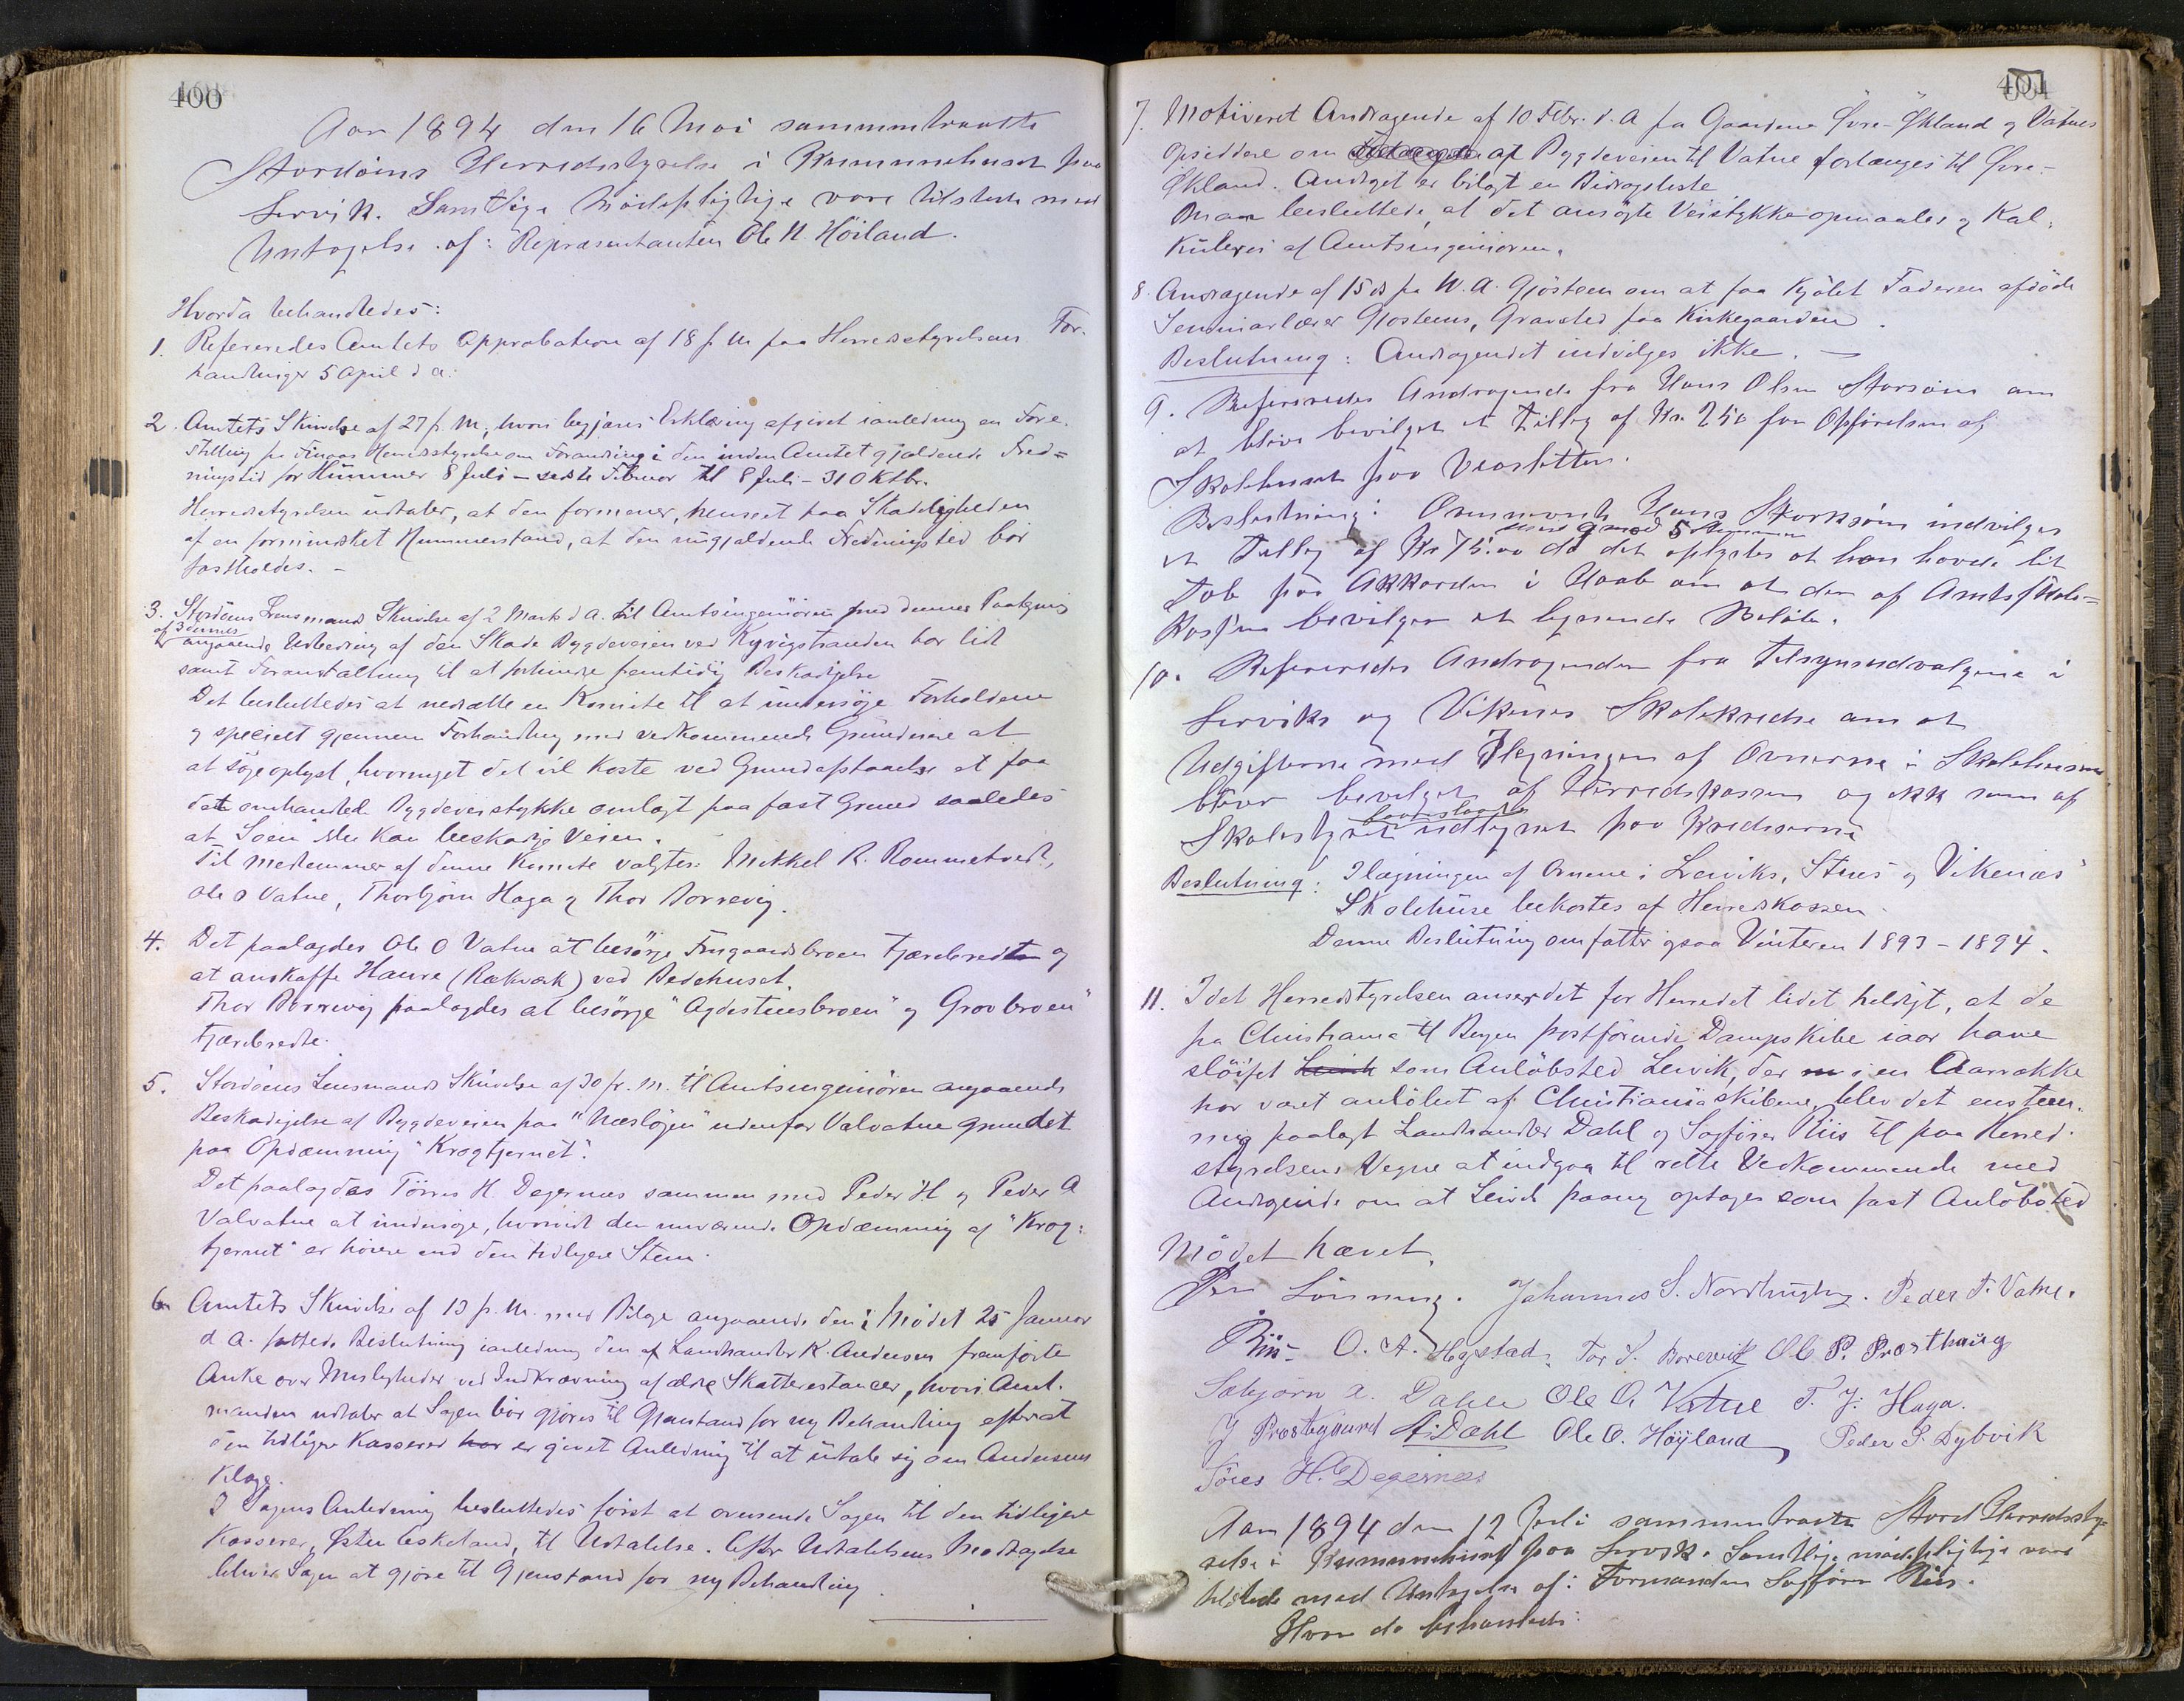 400
Aar 1894 den 16 Mai sammentraadte
Stordöens Herredsstyrelse i Kommunehuset paa
Lervik. Samtlige Mödepligtige vare tilstede med
Untagelse af: Repræsentanten Ole H. Höiland.
Hvorda behandledes:
1. Refereredes Amtets Approbation af 18 f. M. paa Herredsstyrelsens For-
handlinger 5 April d a.
2. Amtets Skrivelse af 27 f. M., hvori begjæres Erklæring afgivet ianledning en Fore-
stilling fra Finaas Herredsstyrelse om Forandring i den inden Amtet gjældende Fred=
ningstid for Hummer 8 Juli – sidste Februar til 8 Juli – 31 Oktbr.
Herredsstyrelsen udtaler, at den formener, henseet paa Skadeligheden
af en forminsket Hummerstand, at den nugjældende Fredningstid bör
fastholdes. –
3. Stordöens Lensmands Skrivelse af 2 Marts d A. til Amtsingeniören med dennes Paategning
af 3 dennes
angaaende Udbedring af den Skade Bygdeveien ved Kyvigstranden har lidt
samt Foranstaltning til at forhindre fremtidig Beskadigelse
Det besluttedes at nedsætte en Komite til at undersöge Forholdene
og specielt gjennem Forhandling med vedkommende Grundeiere at
at söge oplyst, hvormeget det vil koste ved Grundafstaaelse at faa
det omhandled. Bygdeveistykke omlagt paa fast Grund saaledes
at Söen ikke kan beskadige Veien.
Til Medlemmer af denne Komite valgtes: Mikkel R. Rommetvedt,
Ole O Vatne, Thorbjörn Haga og Thor Borrevig.
4. Det paalagdes Ole O Vatne at besörge Frugaardsbroen Tjærebredt og
at anskaffe Haure (Rækværk) ved Bedehuset.
Thor Borrevig paalagdes at besörge "Agdestensbroen" og Grovbroen"
tjærebredte.
5. Stordöens Lensmands Skrivelse af 30 f. M. til Amtsingeniören angaaende
Beskadigelse af Bygdeveien paa "Næslögen" udenfor Valvatne grundet
paa Opdæmning "Krogtjernet".
Det paalagdes Törres H. Degernes sammen med Peder H og Peder A
Valvatne at undersöge, hvorvidt den nuværende Opdæmning af "Krog:
tjernet" er höiere end den tidligere Stem.
6. Amtets Skrivelse af 13 f. M. med Bilage angaaende den i Mödet 25 Januar
d A. fattede Beslutning ianledning den af Landhandler K. Andersen fremförte
Anke over Misligheder ved Indkrævning af ældre Skatterestancer, hvori Amt-
manden udtaler at Sagen bör gjöres til Gjenstand for ny Behandling efterat
den tidligere Kasserer har er givet Anledning til at udtale sig om Andersens
Klage.
I Sagens Anledning besluttedes först at oversende Sagen til den tidligere
Kasserer, Østen Eskeland, til Udtalelse. Efter Udtalelsens Modtagelse
bliver Sagen at gjöre til Gjenstand for ny Behandling.
401
7. Motiveret Andragende af 10 Febr. d. A fra Gaardene Øvre-Økland og Vatnes
opsiddere om at Bygdeveien til Vatne forlænges til Øvre-
Økland. Andraget er bilagt en Bidragsliste
Man besluttede, at det ansögte Veistykke opmaales og Kal-
kuleres af Amtsingeniören.
8. Andragende af 15 ds fra W. A. Gjösteen om at faa Kjöbt Faderen afdöde
Seminarlærer Gjösteens, Gravsted paa Kirkegaarden.
Beslutning: Andragendet indvilges ikke. –
9. Refereredes Andragende fra Hans Olsen Storsöen om
at blive bevilget et Tillæg af Kr. 250 for Opförelsen af
Skolehuset paa Vraasletten.
Beslutning: Hans Storksöen indvilges
med 9 mod 5 Stemmer
et Tillæg af Kr 75.00 da det oplystes at han havde lit
Tab paa Akkorden i Haab om at der af Amtsskole-
kassen bevilges et lignende Belöb.
10. Refereredes Andragender fra Tilsynsudvalgene i
Lerviks og Vikenes Skolekredse om at
Udgifterne med Ilægningen af Ovnerne i Skolehusene
bliver bevilget af Herredskassen og ikk som af
Skolestyret udlignet paa Kredserne
Beslutning: Ilægningen af Ovnene i Lerviks, Stues og Vikenæs
Skolehuse bekostes af Herredskassen.
Denne Beslutning omfatter ogsaa Vinteren 1893 – 1894.
11. Idet Herredstyrelsen anser det for Herredet lidet heldigt, at de
fra Christiania til Bergen postförende Dampskibe iaar have
slöifet Lervik som Anlöbssted Lervik, der i en Aarrække
har været anlöbet af Christianiaskibene, blev det enstem-
mig paalagt Landhandler Dahl og Sagförer Riis til paa Herred-
styrelsens Vegne at indgaa til rette Vedkommende med
Andragende om at Lervik paany optages som fast Anlöbsted
Mödet hævet.
Per Lönning. Johannes S. Nordhuglen. Peder T. Vatne.
Riis O. A. Hystad, Tor S. Borevik Ole P. Prästhaug
Sæbjörn A. Dahle Ole O. Vatne T. J. Haga.
J Prestegaard A. Dahl Ole O. Høyland, Peder P. Dybvik
Töres H. Degernes
Aar 1894 den 12 Juli sammentraadte Stord Herredssty-
relse i Kommunehuset paa Lervik. Samtlige mödepligtige vare
tilstede med Untagelse af: Formanden Sagförer Riis.
Hvor da behandledes: